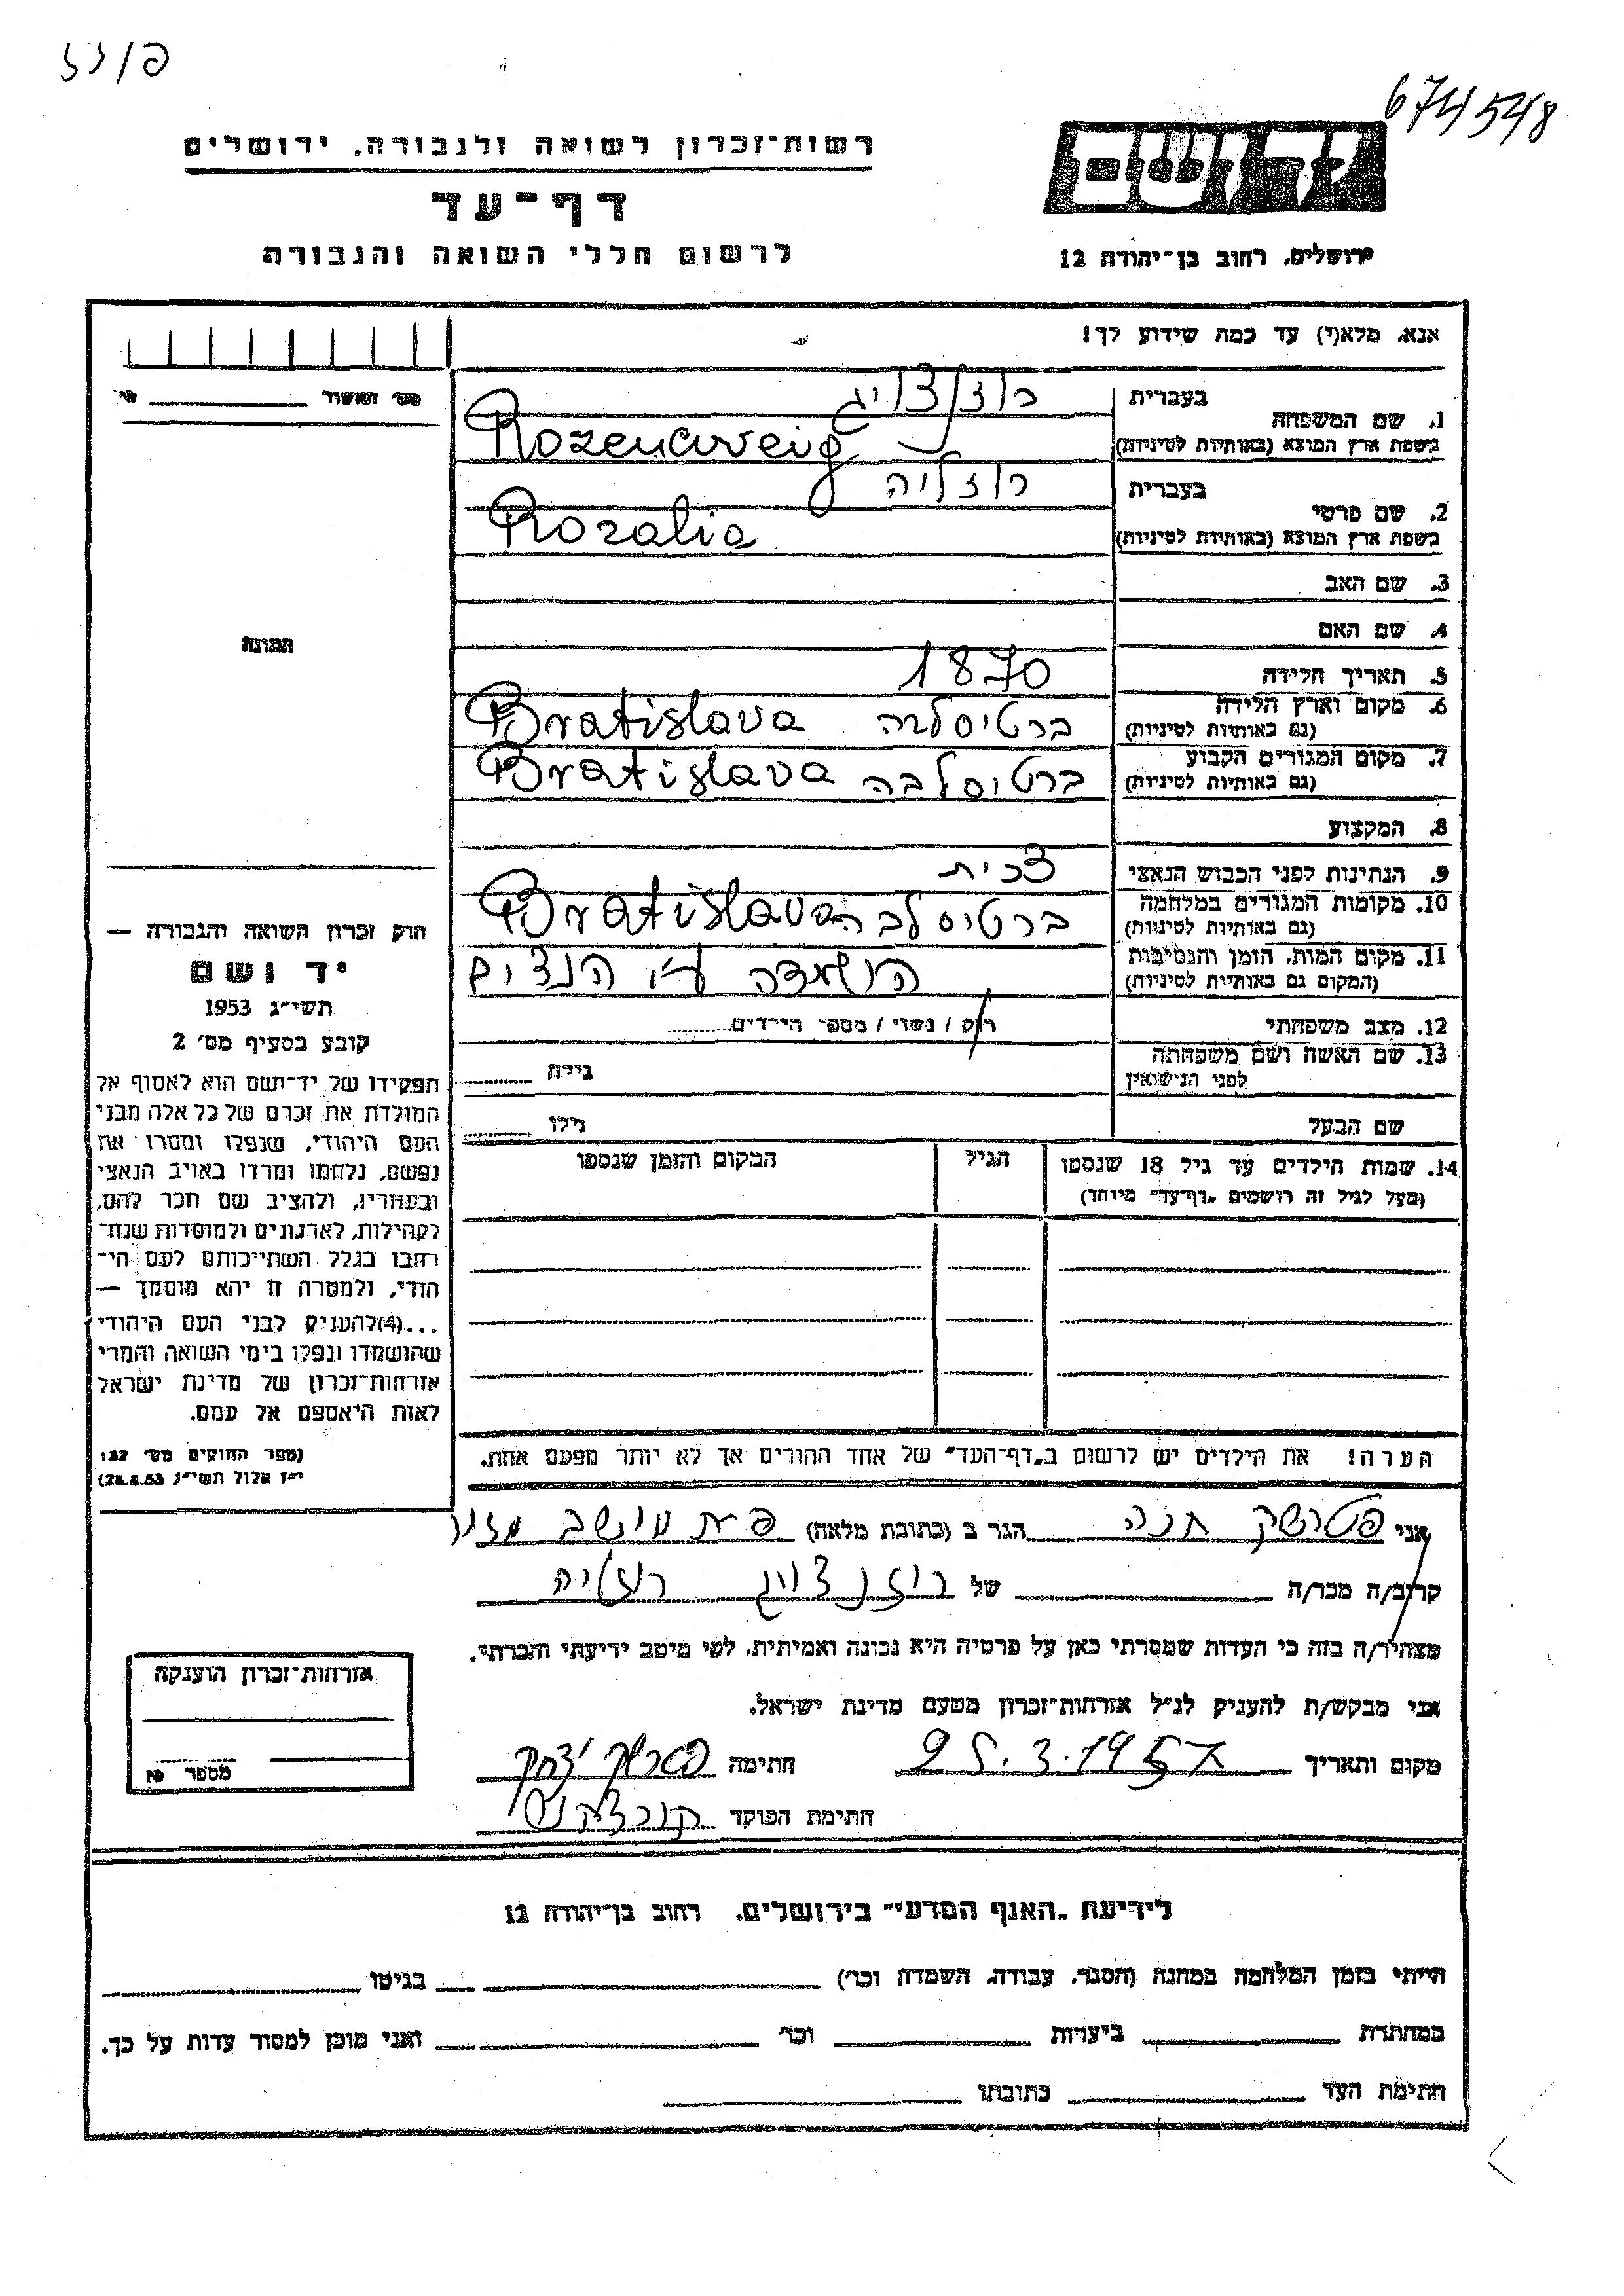 674548
רשות־זכרון לשואה ולגבורה, ירושלים
דף־עד
לרשום חללי השואה והגבורה
ירושלים, רחוב בן־יהודה 12
אנא, מלא(י) עד כמה שידוע לך!
1. שם המשפחה
בעברית
בשפת ארץ המוצא (באותיות לטיניות)
Rozencweig
2. שם פרטי
בעברית רוזליה
בשפת ארץ המוצא (באותיות לטיניות)
Rozalia
3. שם האב
4. שם האם
5. תאריך הלידה 1870
6. מקום וארץ הלידה
(גם באותיות לטיניות)
ברטיסלבה Bratislava
7. מקום המגורים הקבוע
(גם באותיות לטיניות)
ברטיסלבה Bratislava
8. המקצוע
9. הנתינות לפני הכבוש הנאצי צכית
10. מקומות המגורים במלחמה
(גם באותיות לטיניות)
ברטיסלבה Bratislava
11. מקום המות, הזמן והנסיבות
(המקום גם באותיות לטיניות)
הושמדה ע״י הנצים
12. מצב משפחתי רוק / נשוי / מספר הילדים
13. שם האשה ושם משפחתה
לפני הנישואין
גילה
שם הבעל
גילו
14. שמות הילדים עד גיל 18 שנספו
(מעל לגיל זה רושמים „דף־עד״ מיוחד)
הגיל
המקום והזמן שנספו
הערה: את הילדים יש לרשום ב„דף־העד״ של אחד ההורים אך לא יותר מפעם אחת.
תמונה
חוק זכרון השואה והגבורה —
יד ושם
תשי״ג 1953
קובע בסעיף מס׳ 2
תפקידו של יד־ושם הוא לאסוף אל
המולדת את זכרם של כל אלה מבני
העם היהודי, שנפלו ומסרו את
נפשם, נלחמו ומרדו באויב הנאצי
ובעוזריו, ולהציב שם וזכר להם,
לקהילות, לארגונים ולמוסדות שנח־
רבו בגלל השתייכותם לעם הי־
הודי, ולמטרה זו יהא מוסמך —
...(4)להעניק לבני העם היהודי
שהושמדו ונפלו בימי השואה והמרי
אזרחות־זכרון של מדינת ישראל
לאות היאספם אל עמם.
(ספר החוקים מס׳ 132
י״ז אלול תשי״ג, 28.8.53)
אני חנה הגר ב (כתובת מלאה)
קרוב/ה מכר/ה של רוזנצויג רוזליה
מצהיר/ה בזה כי העדות שמסרתי כאן על פרטיה היא נכונה ואמיתית, לפי מיטב ידיעתי והכרתי.
אני מבקש/ת להעניק לנ״ל אזרחות־זכרון מטעם מדינת ישראל.
מקום ותאריך 25.3.1957 חתימה
חתימת הפוקד
אזרחות־זכרון הוענקה
מספר
לידיעת „האגף המדעי״ בירושלים, רחוב בן־יהודה 12
הייתי בזמן המלחמה במחנה (הסגר, עבודה, השמדה וכו׳) בגיטו
במחתרת ביערות וכו׳ ואני מוכן למסור עדות על כך.
חתימת העד כתובתו